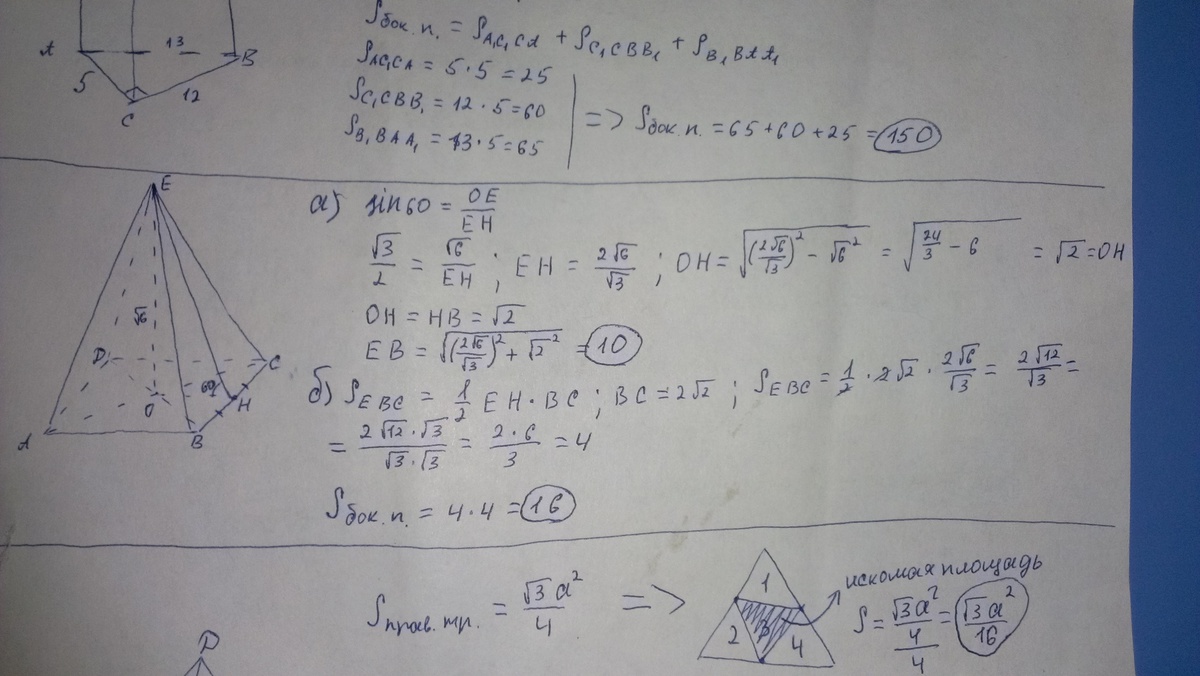 A 13 B
5 12
C
Sбок. п. = SA₁C₁CA + SC₁CBB₁ + SB₁BAA₁
SAC₁CA = 5·5=25
SC₁CBB₁ = 12·5=60
SB₁BAA₁ = 13·5=65
=> Sбок. п. = 65+60+25 = 150
E
√6
D C
60°
O H
A B
а) sin60 = OE/EH
√3/2 = √6/EH ; EH = 2√6/√3 ; OH = √((2√6/√3)² - √6²) = √(24/3 - 6) = √2 = OH
OH = HB = √2
EB = √((2√6/√3)² + √2²) = 10
б) SEBC = 1/2 EH·BC ; BC = 2√2 ; SEBC = 1/2 · 2√2 · 2√6/√3 = 2√12/√3 =
= 2√12·√3/√3·√3 = 2·6/3 = 4
Sбок. п. = 4·4 = 16
Sправ. тр. = √3a²/4 =>
1
2 3 4
искомая площадь
S = √3a²/4/4 = √3a²/16
D